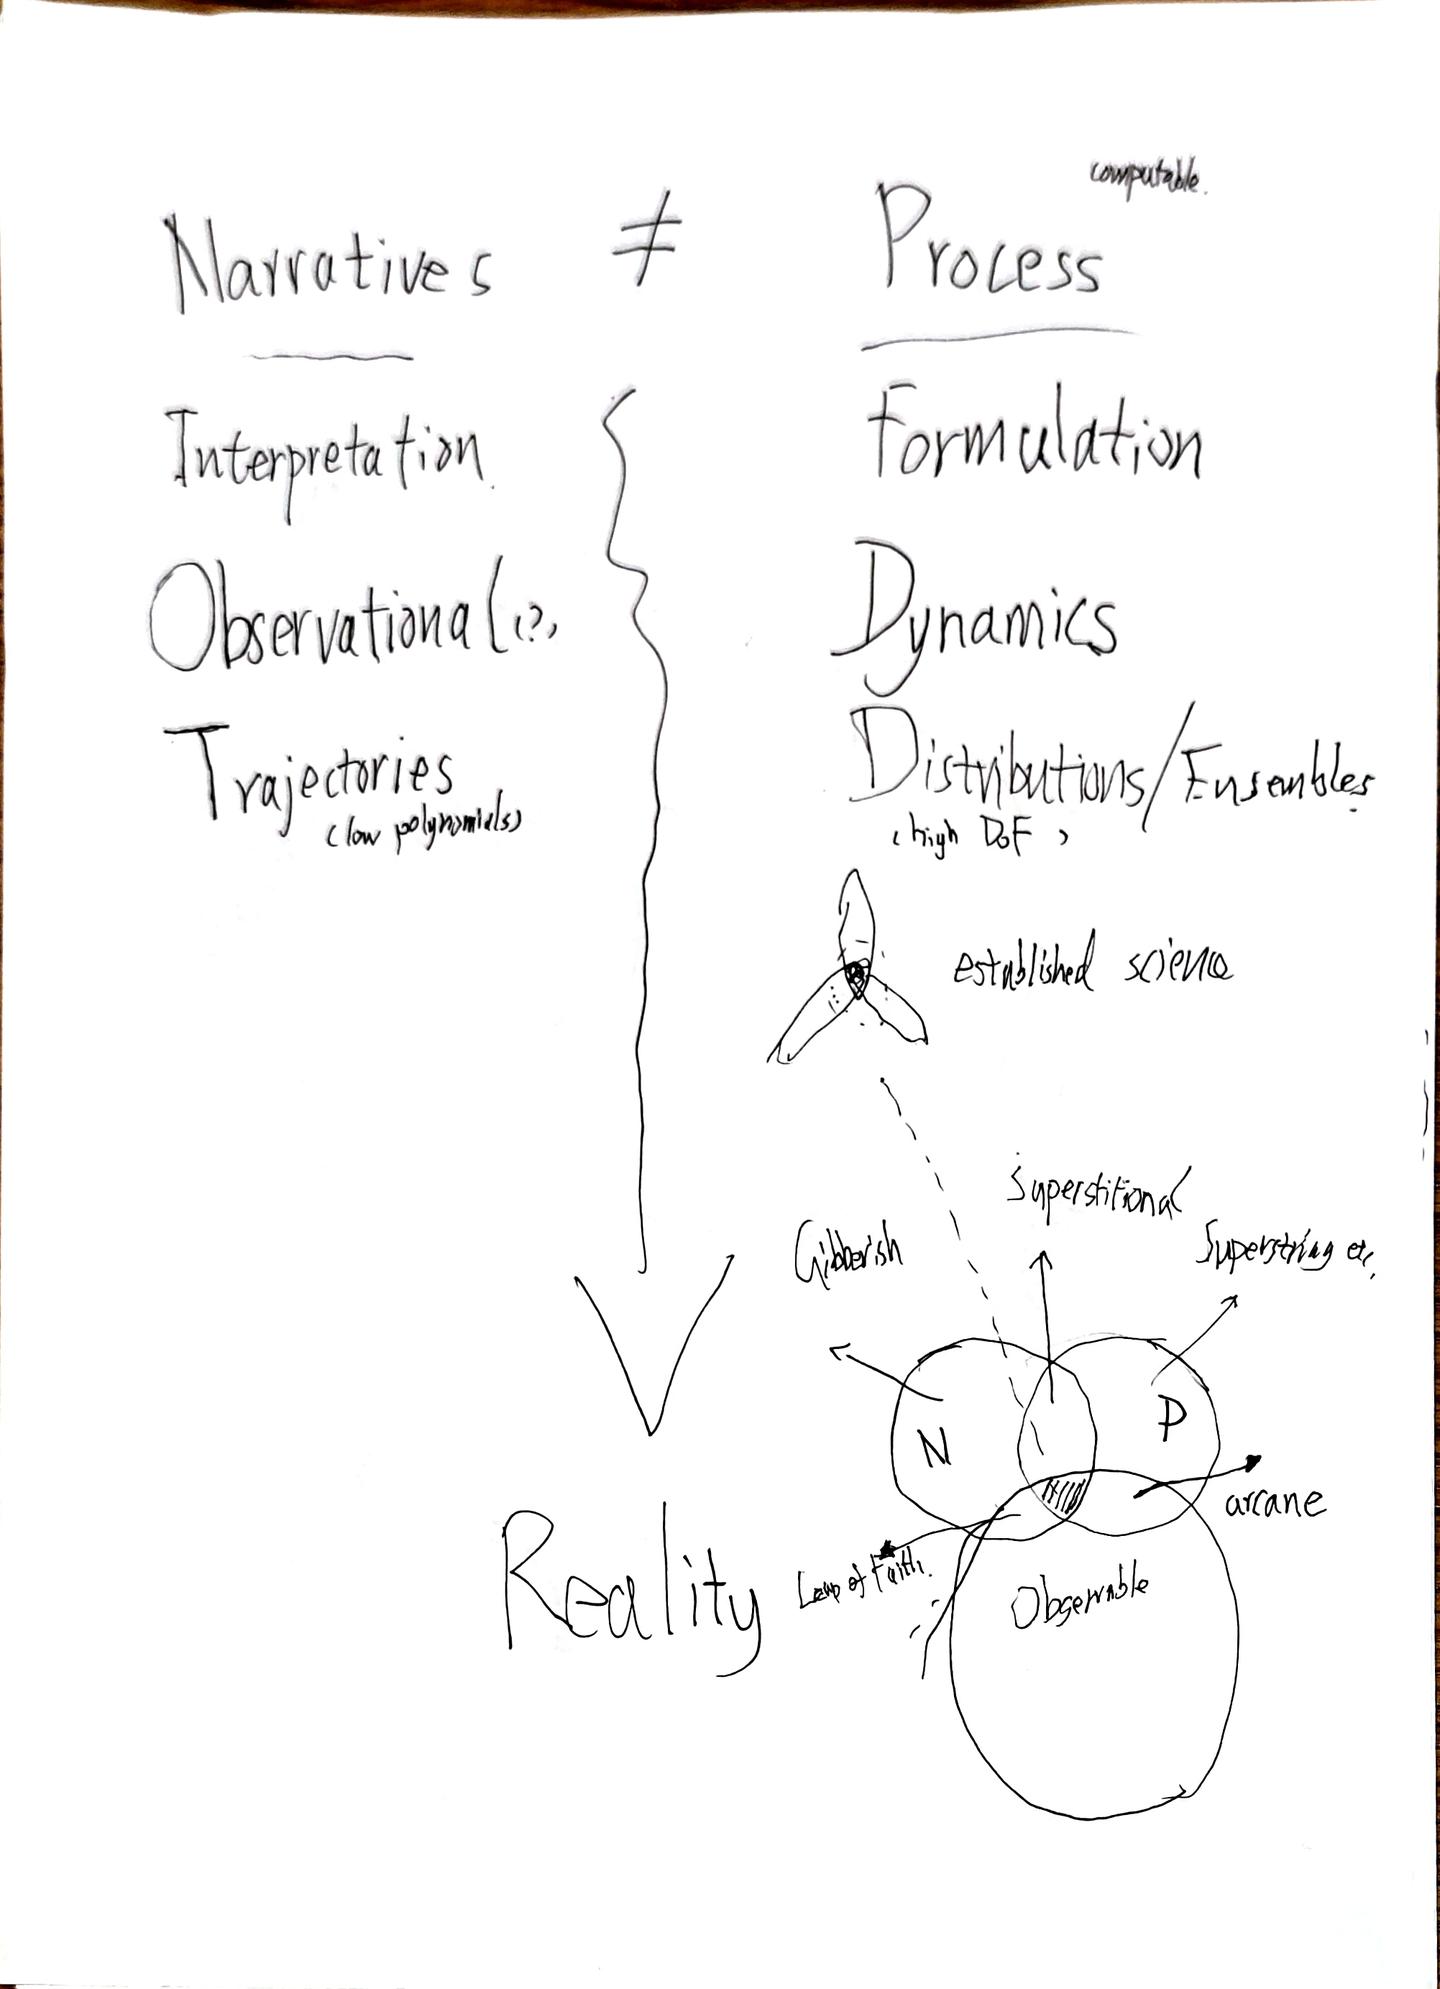 computable.
Narratives ≠ Process
Interpretation. Formulation
Observational (?) Dynamics
Trajectories Distributions/Ensembles.
(low polynomials) (high DoF)
established science
Superstitional
Gibberish Superstring etc.
N P
arcane
Reality Leap of Faith.
Observable